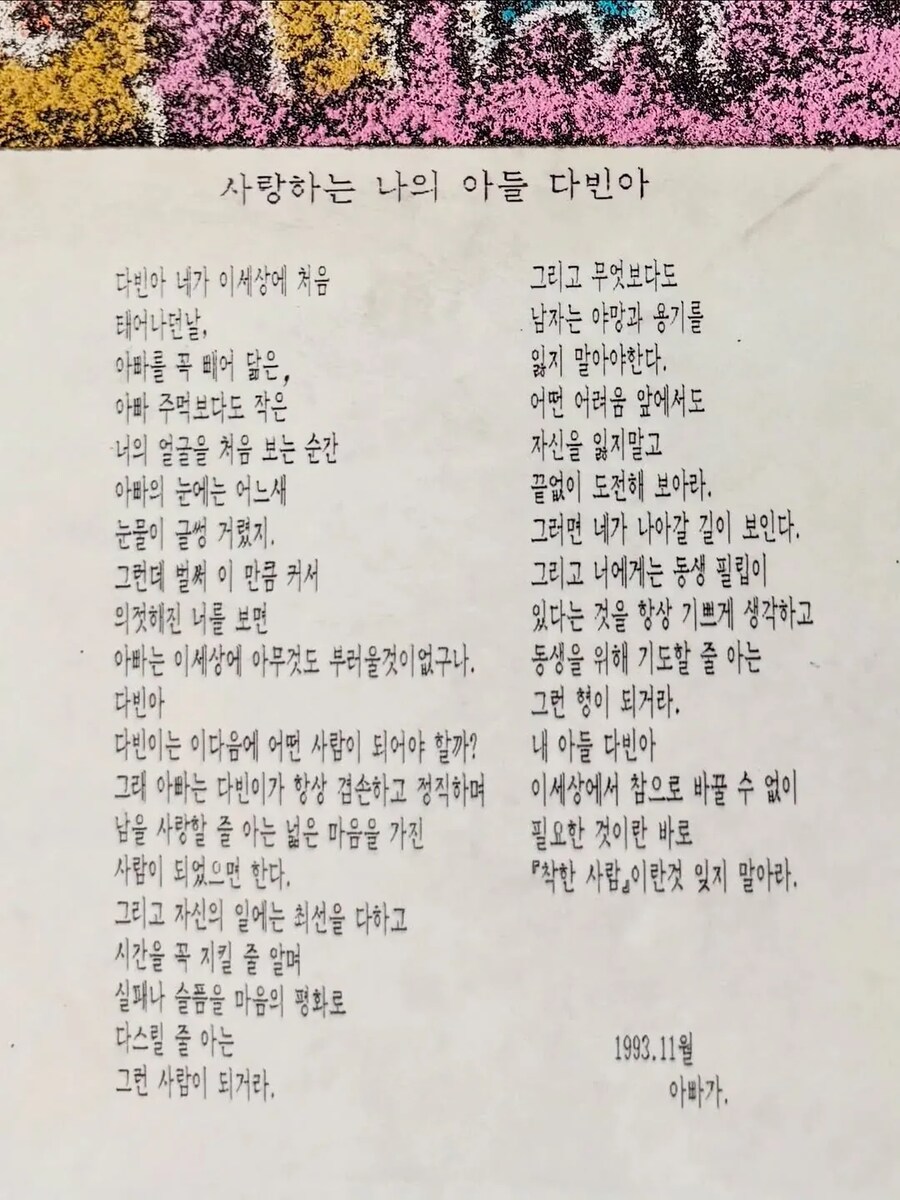 사랑하는 나의 아들 다빈아
다빈아 네가 이세상에 처음
태어나던날,
아빠를 꼭 빼어 닮은,
아빠 주먹보다도 작은
너의 얼굴을 처음 보는 순간
아빠의 눈에는 어느새
눈물이 글썽 거렸지.
그런데 벌써 이 만큼 커서
의젓해진 너를 보면
아빠는 이세상에 아무것도 부러울것이없구나.
다빈아
다빈이는 이다음에 어떤 사람이 되어야 할까?
그래 아빠는 다빈이가 항상 겸손하고 정직하며
남을 사랑할 줄 아는 넓은 마음을 가진
사람이 되었으면 한다.
그리고 자신의 일에는 최선을 다하고
시간을 꼭 지킬 줄 알며
실패나 슬픔을 마음의 평화로
다스릴 줄 아는
그런 사람이 되거라.
그리고 무엇보다도
남자는 야망과 용기를
잃지 말아야한다.
어떤 어려움 앞에서도
자신을 잃지말고
끝없이 도전해 보아라.
그러면 네가 나아갈 길이 보인다.
그리고 너에게는 동생 필립이
있다는 것을 항상 기쁘게 생각하고
동생을 위해 기도할 줄 아는
그런 형이 되거라.
내 아들 다빈아
이세상에서 참으로 바꿀 수 없이
필요한 것이란 바로
『착한 사람』이란것 잊지 말아라.
1993.11월
아빠가.